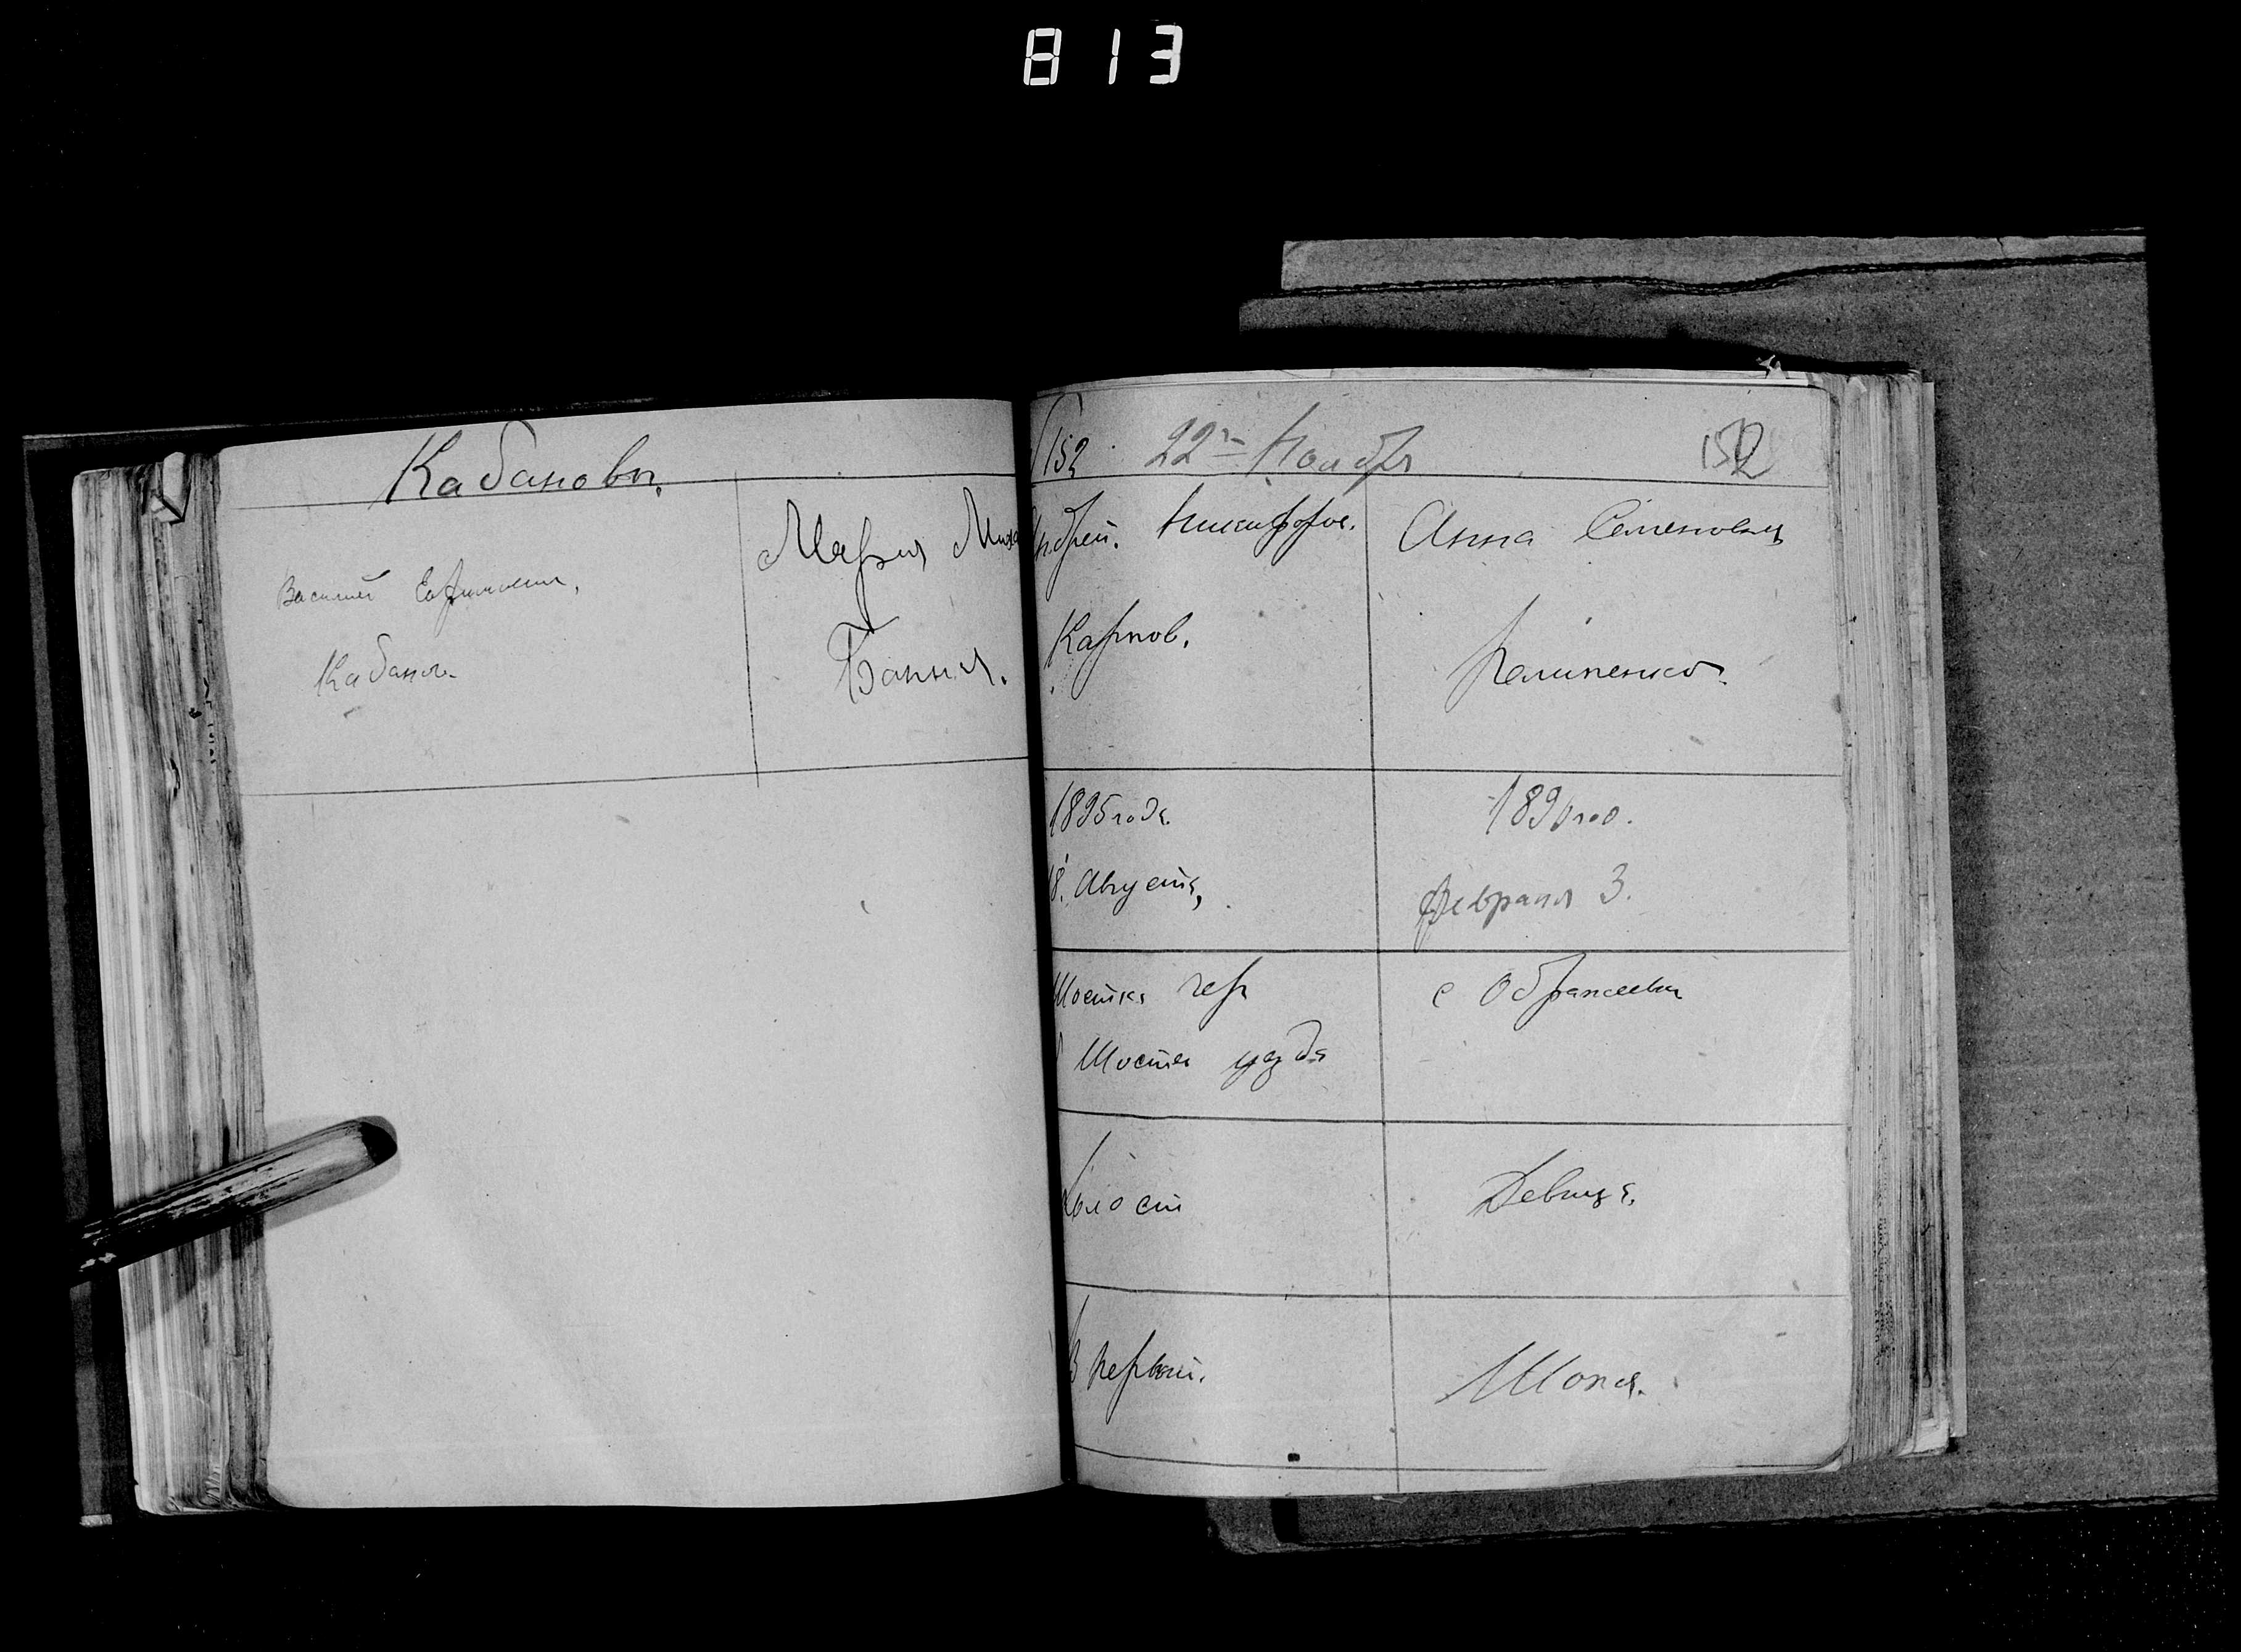 813
Кабановы.
Василий Ефимович,
Кабанов.
Мария Миха
Банная.
152 22го Ноября 152
Андрей. Никифоров.
Карпов.
Анна Семеновна
1895 года.
18. Августа,
189 год.
Февраля 3.
Шостка чер
Шостка уезда
с Ображеевка
Холост
Девица.
В первый.
Тоже.